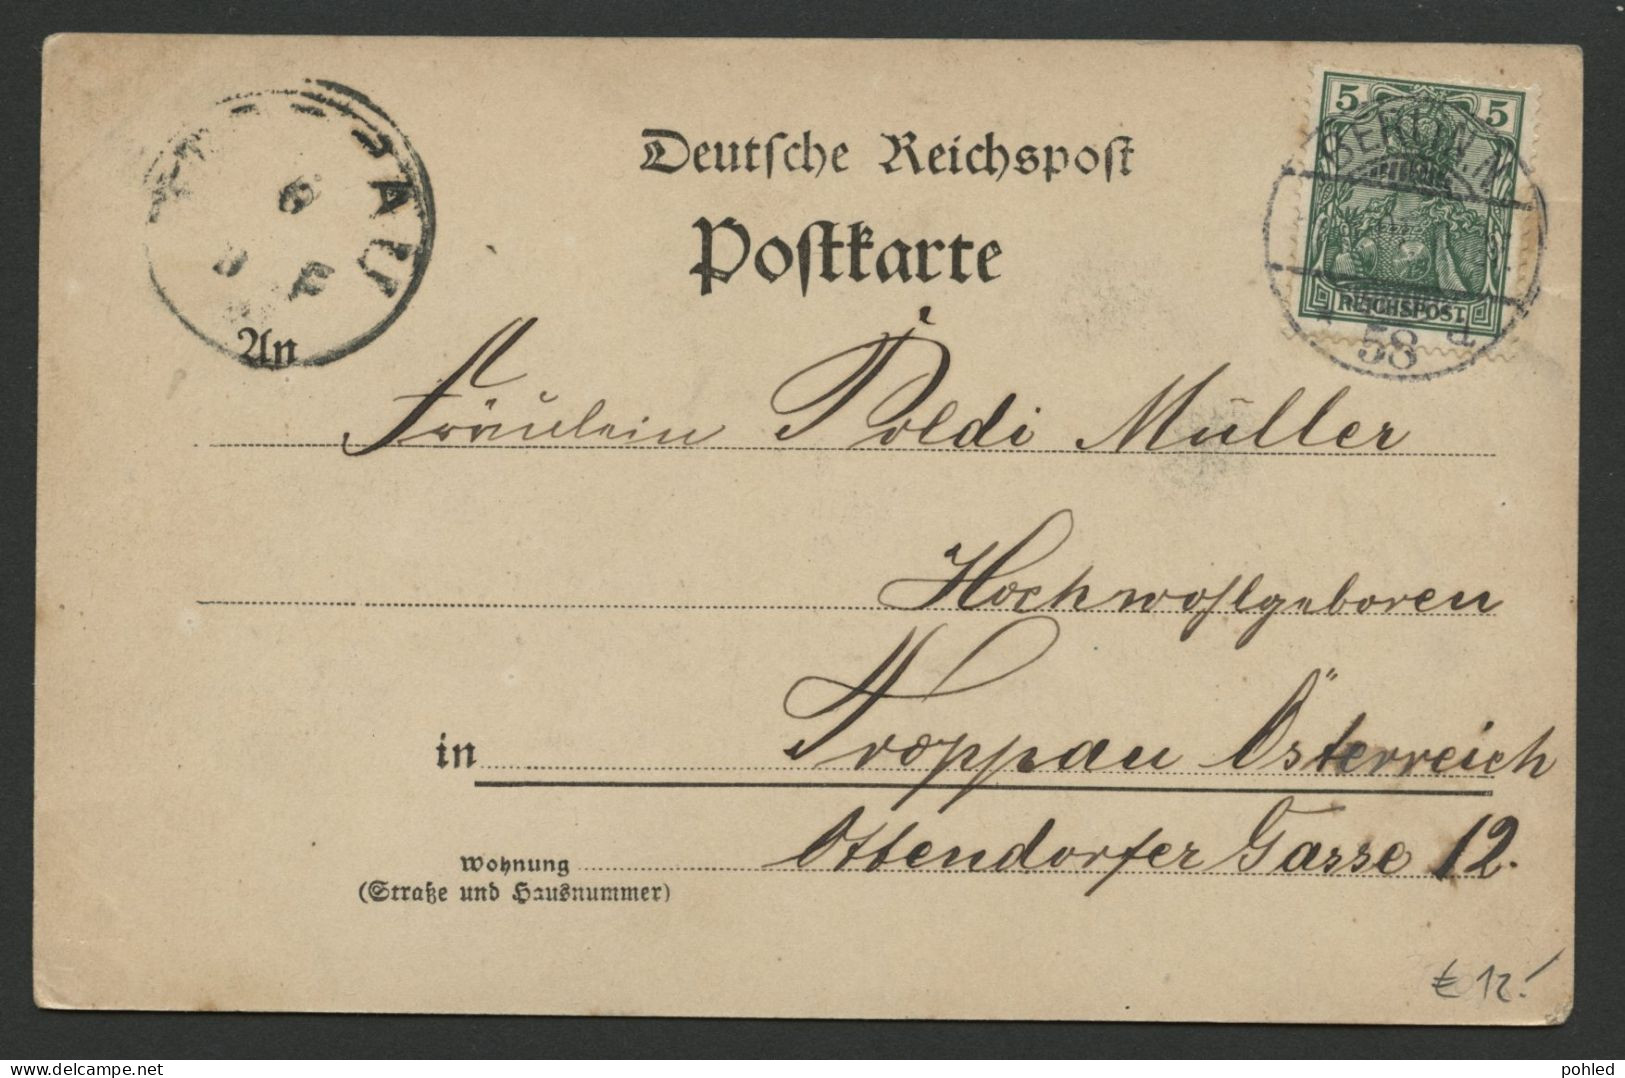 5 5
BERLIN, N.
REICHSPOST
58 d
PAU
6
Deutsche Reichspost
Postkarte
An
Fräulein Poldi Müller
Hochwohlgeboren
in Troppau Österreich
Wohnung Ottendorfer Gasse 12.
(Straße und Hausnummer)
€ 12.-
www.delcampe.net
pohled